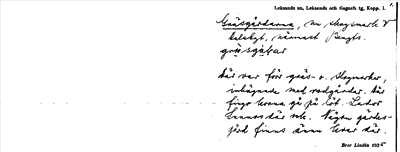 Leksands sn, Leksands och Gagnefs tg, Kopp. l.
Gräsgårdarna, nu skogsmark V
beläget, närmast
gräsgårdar
Där var förr gräs- o. slogmarker,
inhägnade med rodgårdar. Där
fingo korna gå på löt. Lador
funnos där ock. Någon gärdes-
gård finns ännu kvar där.
Bror Lindén 1935